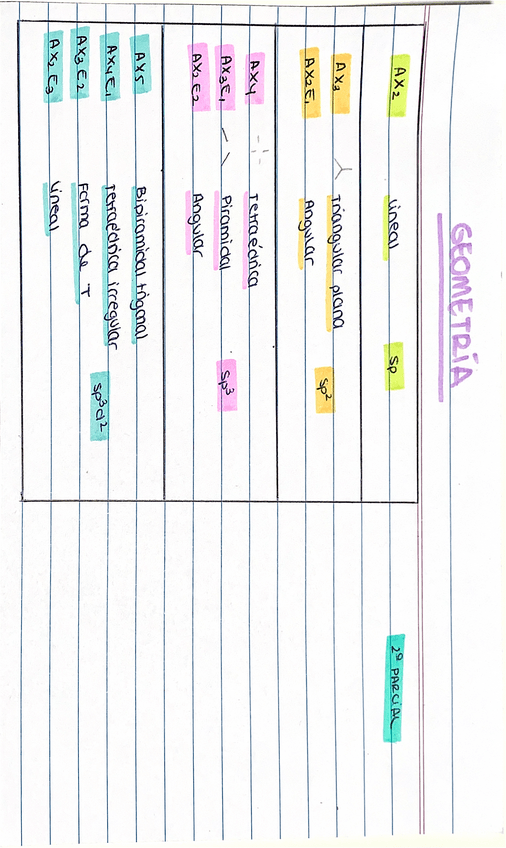 GEOMETRÍA
2º PARCIAL
AX2 lineal sp
AX3 Triangular plana
AX2E1 Angular sp²
AX4 Tetraédrica
AX3E1 Piramidal sp³
AX2E2 Angular
AX5 Bipiramidal trigonal
AX4E1 Tetraédrica irregular sp³d²
AX3E2 Forma de T
AX2E3 Lineal